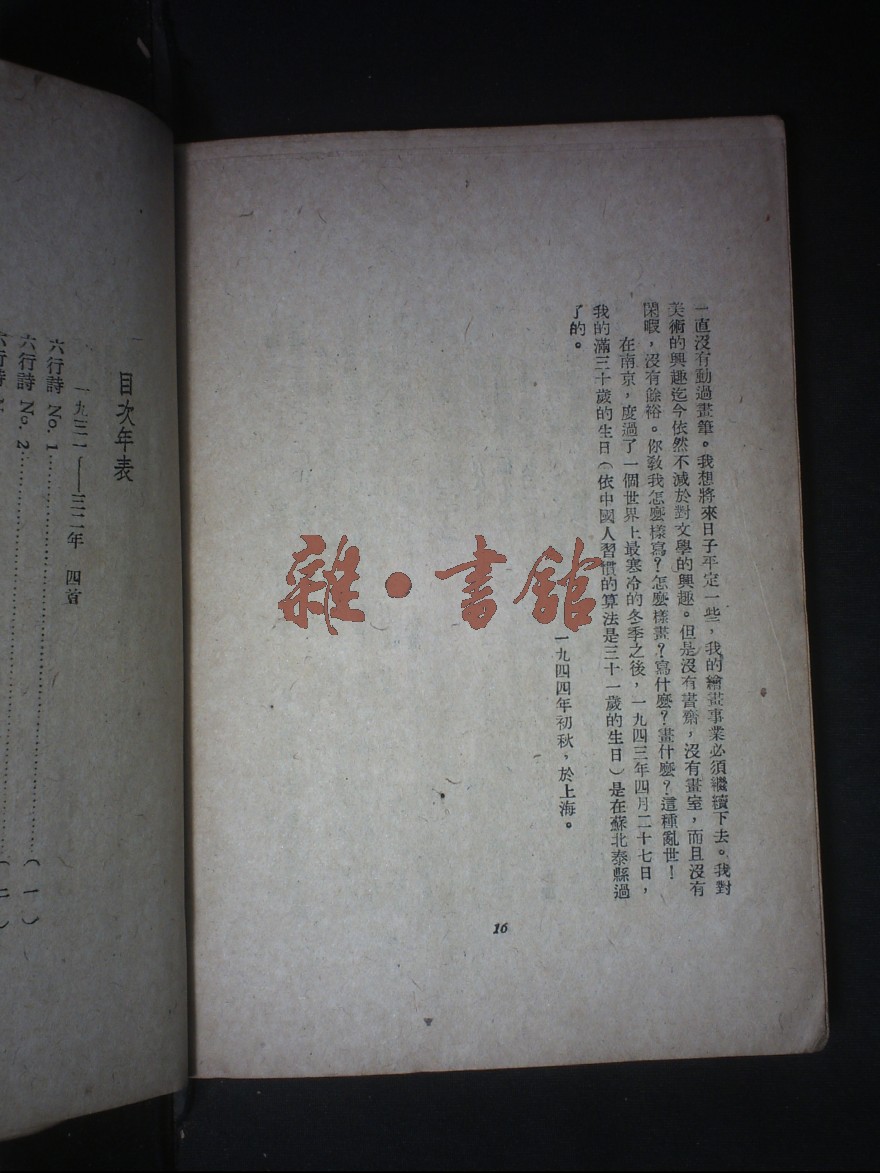 一直沒有動過畫筆。我想將來日子平定一些，我的繪畫事業必須繼續下去。我對
美術的興趣迄今依然不減於對文學的興趣。但是沒有書齋，沒有畫室，而且沒有
閑暇，沒有餘裕。你教我怎麼樣寫？怎麼樣畫？寫什麼？畫什麼？這種亂世！
在南京，度過了一個世界上最寒冷的冬季之後，一九四三年四月二十七日，
我的滿三十歲的生日（依中國人習慣的算法是三十一歲的生日）是在蘇北泰縣過
了的。
一九四四年初秋，於上海。
16
雜·書館
目次年表
一九三一——三二年 四首
六行詩 No. 1……………………（一）
六行詩 No. 2……………………（二）
六行詩